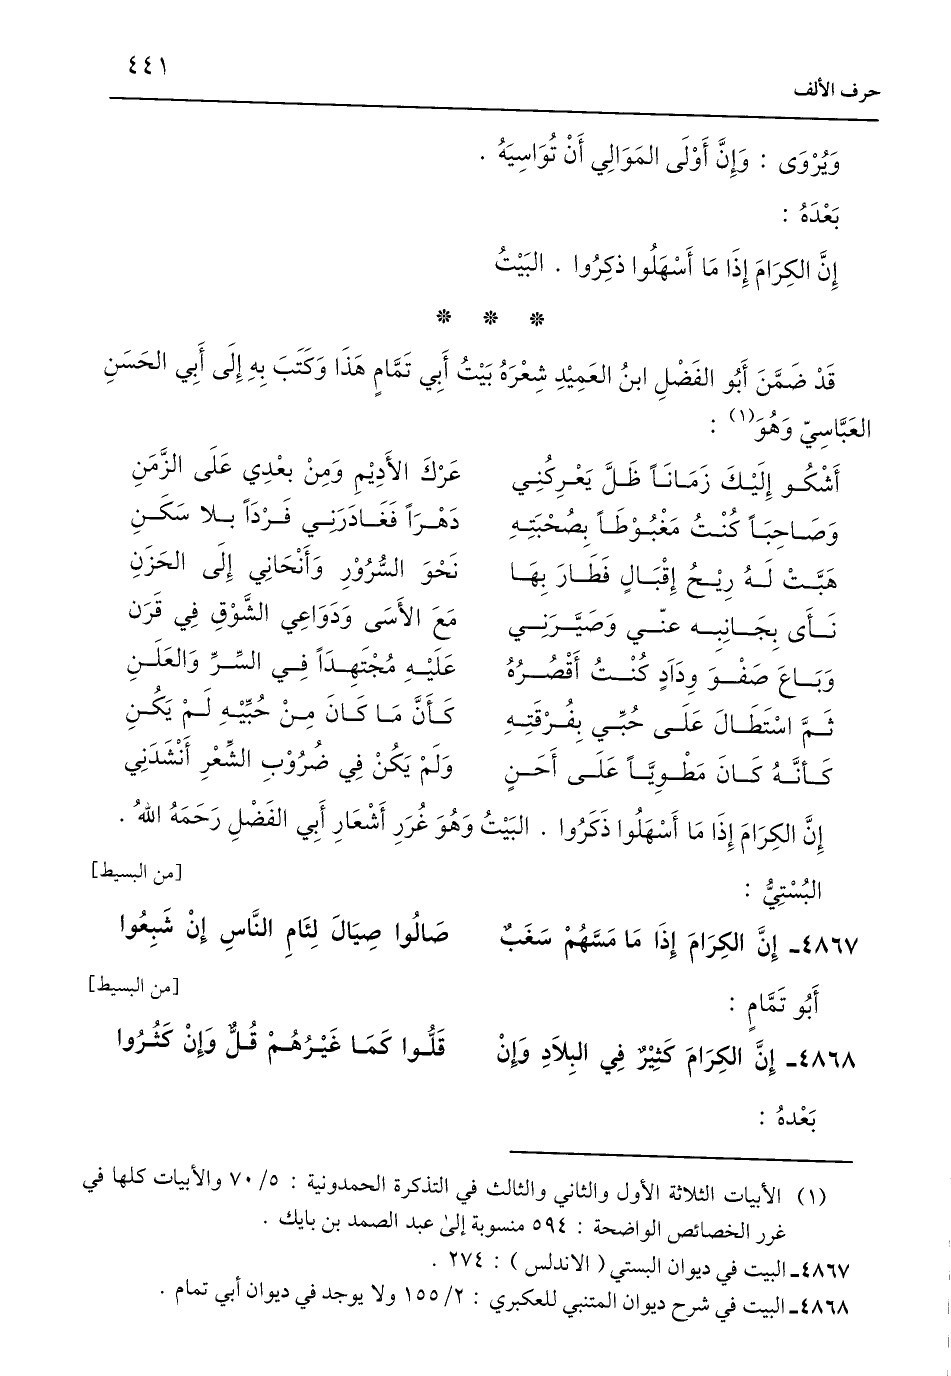 ٤٤١
حرف الألف
وَيُرْوَى : وَإِنَّ أَوْلَى المَوَالِي أَنْ تُوَاسِيَهُ .
بَعْدَهُ :
إِنَّ الكِرَامَ إِذَا مَا أَسْهَلُوا ذكِرُوا . البَيْتُ
* * *
قَدْ ضَمَّنَ أَبُو الفَضْلِ ابنُ العَمِيْدِ شِعْرَهُ بَيْتُ أَبِي تَمَّامٍ هَذَا وَكَتَبَ بِهِ إِلَى أَبِي الحَسَنِ
العَبَّاسِيّ وَهُوَ(١) :
أَشْكُو إِلَيْكَ زَمَانَاً ظَلَّ يَعْرِكُنِي عَرْكَ الأَدِيْمِ وَمِنْ بعْدِي عَلَى الزَّمَنِ
وَصَاحِبَاً كُنْتُ مَغْبُوْطَاً بِصُحْبَتِهِ دَهْرَاً فَغَادَرَنِي فَرْدَاً بلا سَكَنِ
هَبَّتْ لَهُ رِيْحُ إِقْبَالٍ فَطَارَ بِهَا نَحْوَ السُّرُوْرِ وَأَنْحَانِي إِلَى الحَزَنِ
نَأَى بِجَانِبِه عنّي وَصَيَّرَنِي مَعَ الأَسَى وَدَوَاعِي الشَّوْقِ فِي قَرَن
وَبَاعَ صَفْوَ وِدَادٍ كُنْتُ أَقْصُرُهُ عَلَيْهِ مُجْتَهِدَاً فِي السِّرِّ وَالعَلَنِ
ثَمَّ اسْتَطَالَ عَلَى حُبِّي بِفُرْقَتِهِ كَأَنَّ مَا كَانَ مِنْ حُبِّيْهِ لَمْ يَكُنِ
كَأنَّهُ كَانَ مَطْوِيَّاً عَلَى أَحَنٍ وَلَمْ يَكُنْ فِي ضُرُوْبِ الشِّعْرِ أَنْشَدَنِي
إِنَّ الكِرَامَ إِذَا مَا أَسْهَلُوا ذَكَرُوا . البَيْتُ وَهُوَ غُرَرِ أَشْعَارِ أَبِي الفَضْلِ رَحَمَهُ اللهُ .
البُسْتِيُّ : [من البسيط]
٤٨٦٧ـ إِنَّ الكِرَامَ إِذَا مَا مَسَّهُمْ سَغَبٌ صَالُوا صِيَالَ لِئَامِ النَّاسِ إِنْ شَبِعُوا
أَبُو تَمَّامٍ : [من البسيط]
٤٨٦٨ـ إِنَّ الكِرَامَ كَثِيْرٌ فِي البِلَادِ وَإِنْ قَلُّوا كَمَا غَيْرُهُمْ قُلٌّ وَإِنْ كَثُرُوا
بَعْدهُ :
(١) الأبيات الثلاثة الأول والثاني والثالث في التذكرة الحمدونية : ٥/ ٧٠ والأبيات كلها في
غرر الخصائص الواضحة : ٥٩٤ منسوبة إلىٰ عبد الصمد بن بابك .
٤٨٦٧ـ البيت في ديوان البستي ( الاندلس ) : ٢٧٤ .
٤٨٦٨ـ البيت في شرح ديوان المتنبي للعكبري : ٢/ ١٥٥ ولا يوجد في ديوان أبي تمام .